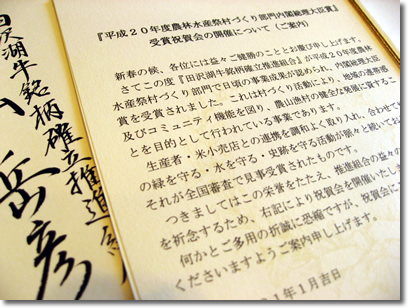 『平成20年度農林水産祭村づくり部門内閣総理大臣賞』
受賞祝賀会の開催について（ご案内）
新春の候、各位には益々ご健勝のこととお慶び申し上げます。
さてこの度『田沢湖牛銘柄確立推進組合』が平成20年度農林
水産祭村づくり部門で日頃の事業成果が認められ、内閣総理大臣
賞を受賞されました。これは村づくり活動により、地域の連帯感
及びコミュニティ機能を図り、農山漁村の健全な発展に資するこ
とを目的として行われている事業であります。
生産者・米小売店との連携を調和よく取り入れ、合わせて
の緑を守る・水を守る・史跡を守る活動が脈々と続いてお
それが全国審査で見事受賞されたものです。
つきましてはこの栄誉をたたえ、推進組合の益々の
を祈念するため、右記により祝賀会を開催いたし
何かとご多用の折誠に恐縮ですが、祝賀会に
くださいますようご案内申し上げます。
1年1月吉日
田沢湖牛銘柄確立推進
岳彦